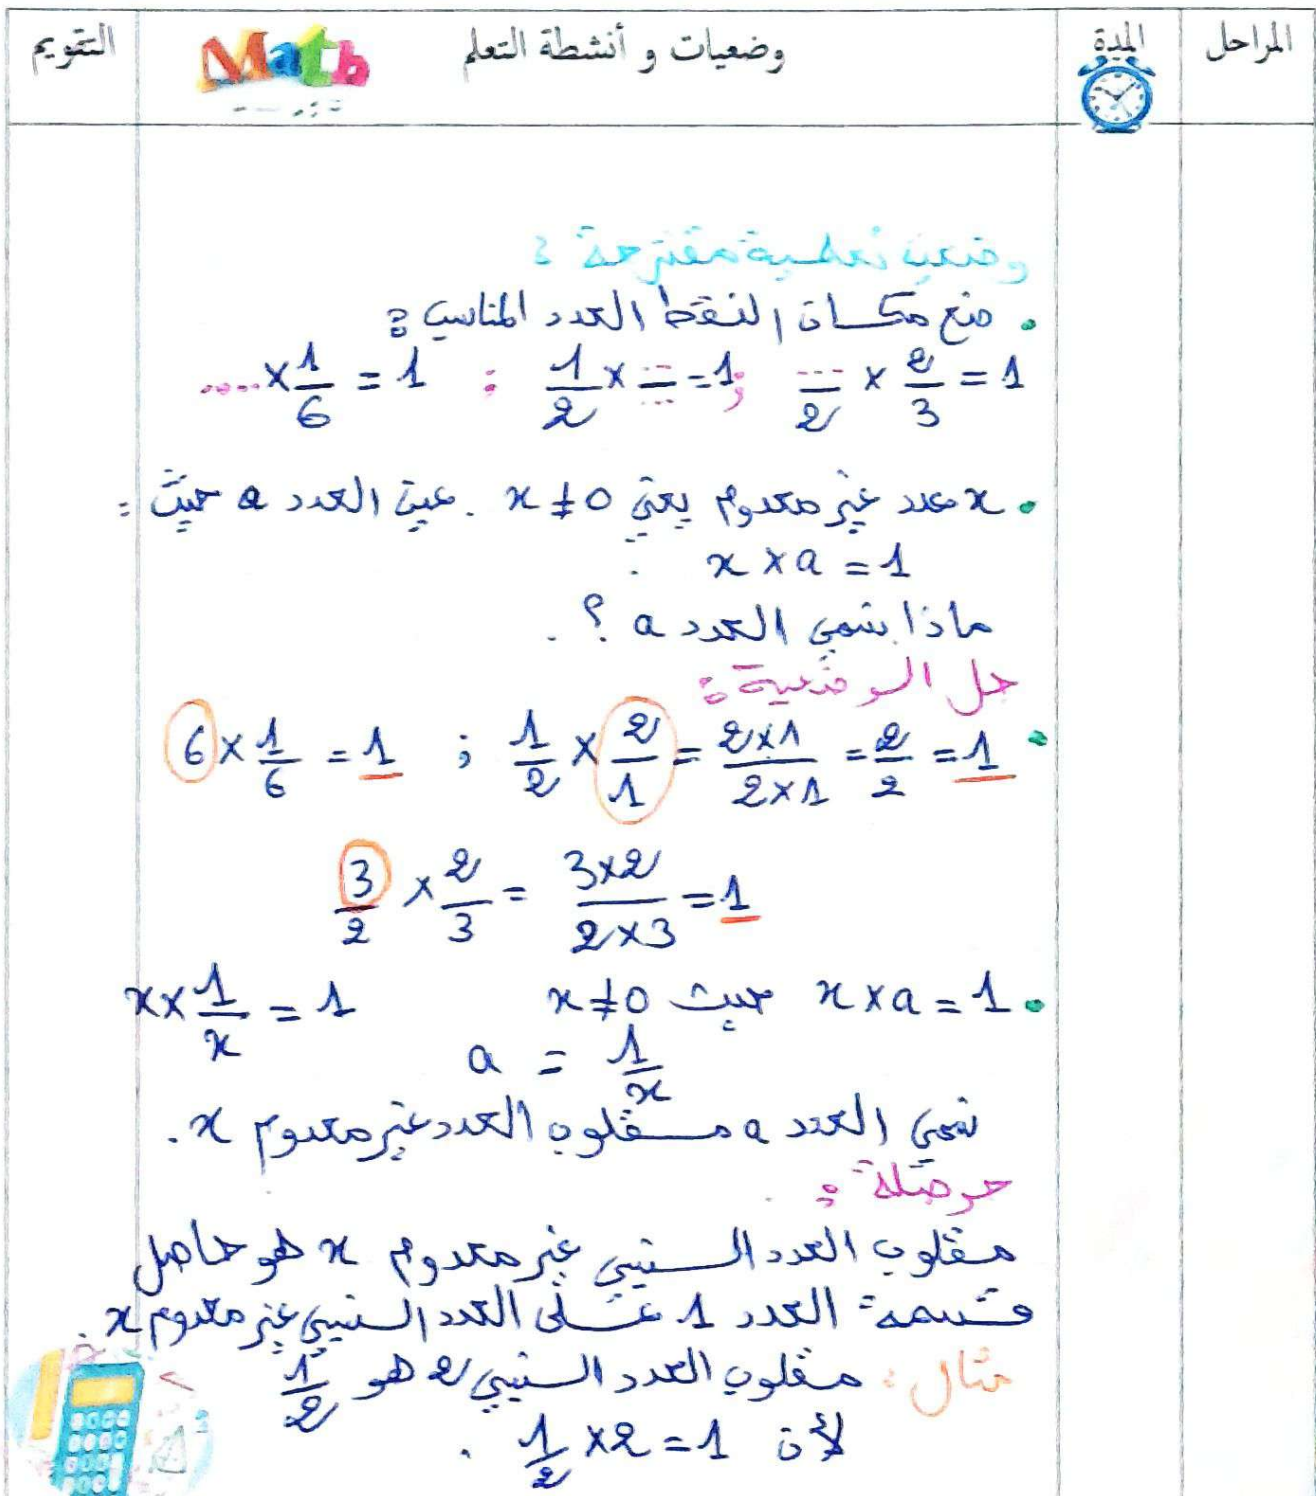 المراحل المدة وضعيات و أنشطة التعلم Math التقويم
وضعية تعلمية مقترحة :
• ضع مكان النقط العدد المناسب :
.... × 1/6 = 1 ; 1/2 × .../... = 1 ; .../2 × 2/3 = 1
• x عدد غير معدوم يعني x ≠ 0 . عين العدد a حيث :
x × a = 1
ماذا نسمي العدد a ؟ .
حل الوضعية :
• 6 × 1/6 = 1 ; 1/2 × 2/1 = 2×1/2×1 = 2/2 = 1
3/2 × 2/3 = 3×2/2×3 = 1
• x × a = 1 حيث x ≠ 0 x × 1/x = 1
a = 1/x
نسمي العدد a مقلوب العدد غير معدوم x .
حوصلة :
مقلوب العدد النسبي غير معدوم x هو حاصل
قسمة العدد 1 على العدد النسبي غير معدوم x .
مثال : مقلوب العدد النسبي 2 هو 1/2
لأن 1/2 × 2 = 1 .